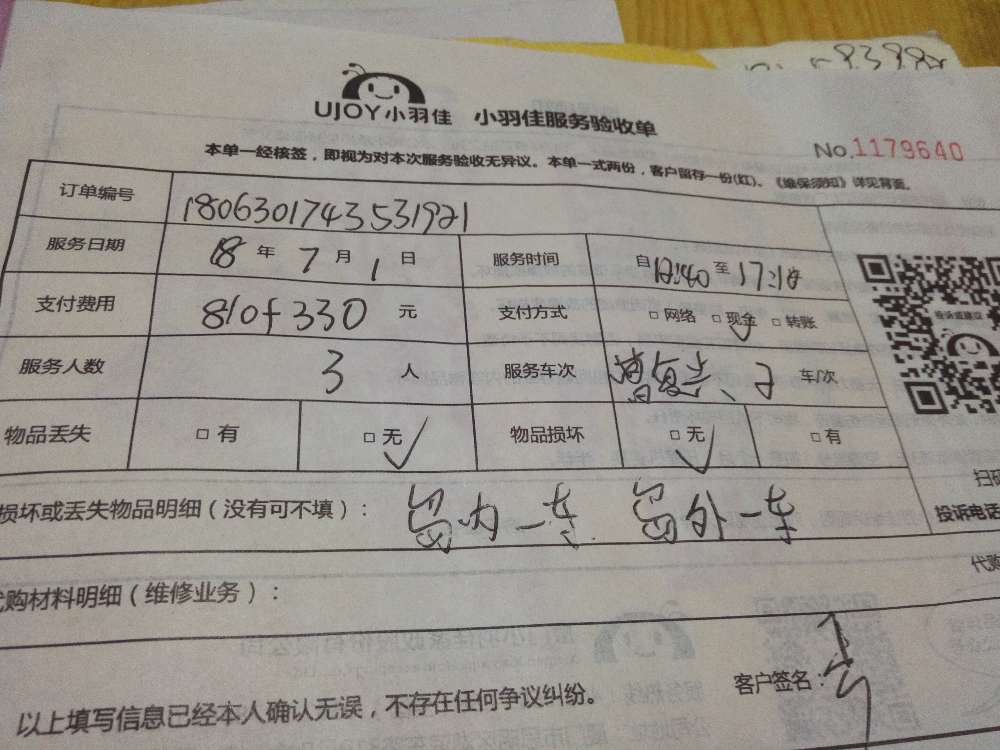 UJOY小羽佳 小羽佳服务验收单
No.1179640
本单一经核签，即视为对本次服务验收无异议。本单一式两份，客户留存一份(红)。《维保须知》详见背面。
订单编号 1806301743531921
服务日期 18 年 7 月 1 日 服务时间 自 至 17:10
支付费用 810+330 元 支付方式 □网络 □现金 □转账
投诉或建议
服务人数 3 人 服务车次 2 车/次
物品丢失 □有 □无 物品损坏 □无 □有
扫码
损坏或丢失物品明细（没有可不填）： 岛内一车 岛外一车
投诉电话
代购
代购材料明细（维修业务）：
客户签名：
以上填写信息已经本人确认无误，不存在任何争议纠纷。